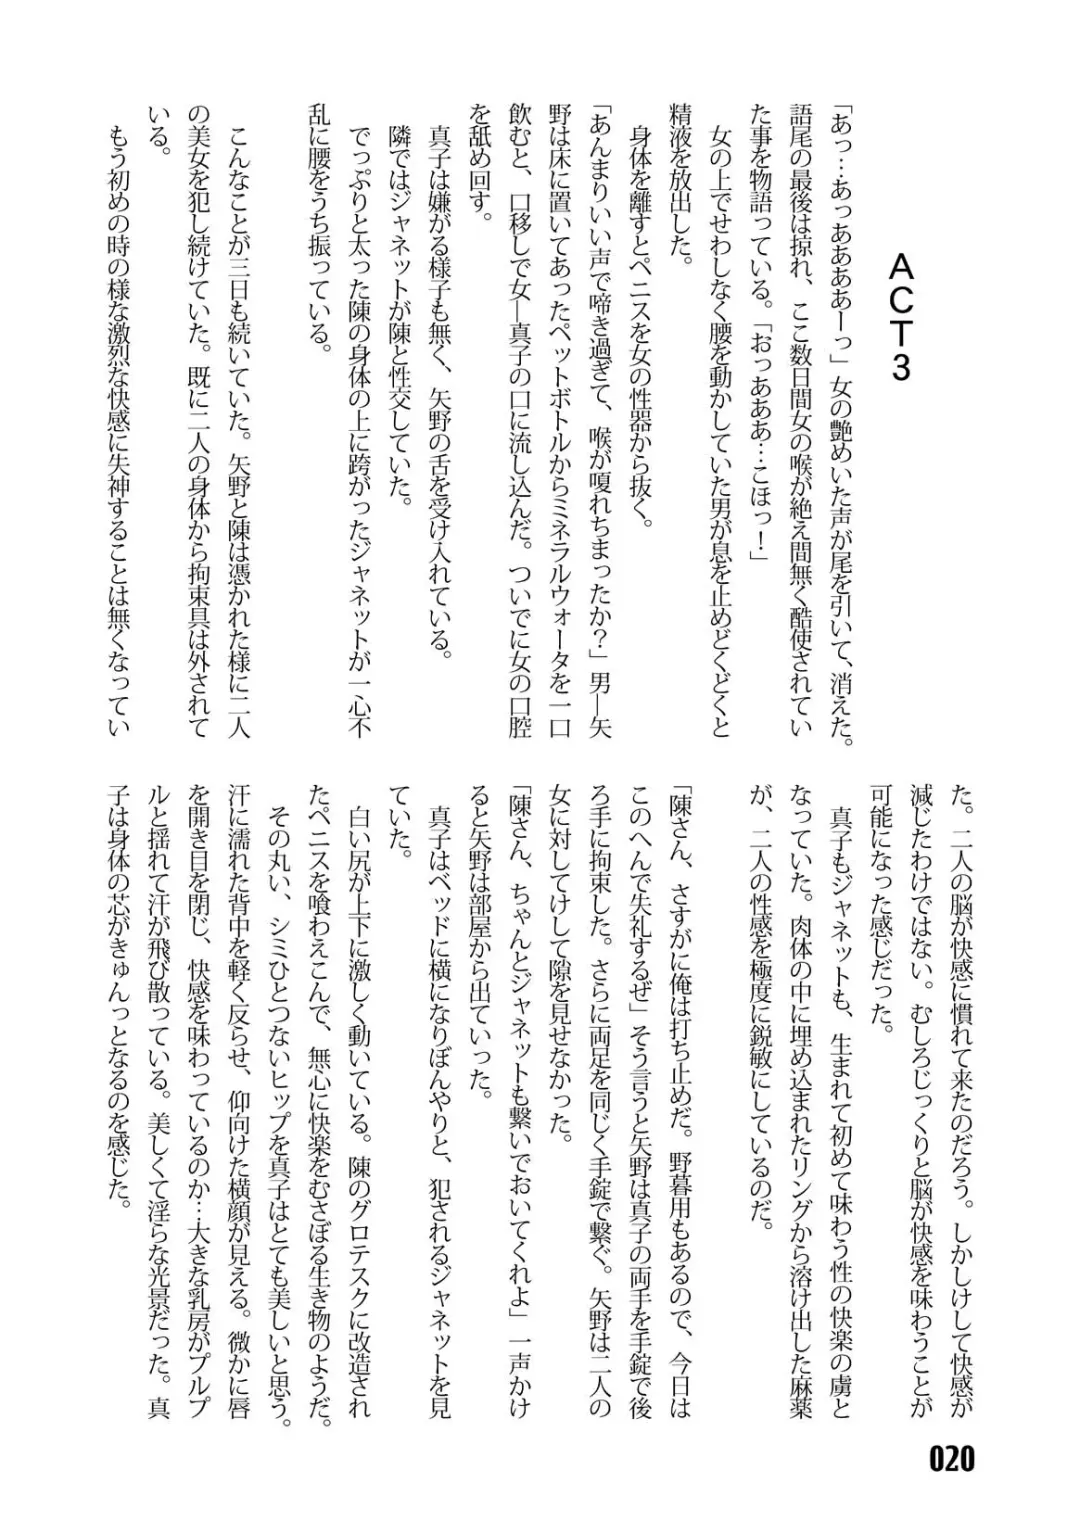 ACT3
「あっ…あっああああーっ」女の艶めいた声が尾を引いて、消えた。
語尾の最後は掠れ、ここ数日間女の喉が絶え間無く酷使されてい
た事を物語っている。「おっあああ…こほっ！」
女の上でせわしなく腰を動かしていた男が息を止めどくどくと
精液を放出した。
身体を離すとペニスを女の性器から抜く。
「あんまりいい声で啼き過ぎて、喉が嗄れちまったか？」男―矢
野は床に置いてあったペットボトルからミネラルウォータを一口
飲むと、口移しで女―真子の口に流し込んだ。ついでに女の口腔
を舐め回す。
真子は嫌がる様子も無く、矢野の舌を受け入れている。
隣ではジャネットが陳と性交していた。
でっぷりと太った陳の身体の上に跨がったジャネットが一心不
乱に腰をうち振っている。
こんなことが三日も続いていた。矢野と陳は憑かれた様に二人
の美女を犯し続けていた。既に二人の身体から拘束具は外されて
いる。
もう初めの時の様な激烈な快感に失神することは無くなってい
た。二人の脳が快感に慣れて来たのだろう。しかしけして快感が
減じたわけではない。むしろじっくりと脳が快感を味わうことが
可能になった感じだった。
真子もジャネットも、生まれて初めて味わう性の快楽の虜と
なっていた。肉体の中に埋め込まれたリングから溶け出した麻薬
が、二人の性感を極度に鋭敏にしているのだ。
「陳さん、さすがに俺は打ち止めだ。野暮用もあるので、今日は
このへんで失礼するぜ」そう言うと矢野は真子の両手を手錠で後
ろ手に拘束した。さらに両足を同じく手錠で繋ぐ。矢野は二人の
女に対してけして隙を見せなかった。
「陳さん、ちゃんとジャネットも繋いでおいてくれよ」一声かけ
ると矢野は部屋から出ていった。
真子はベッドに横になりぼんやりと、犯されるジャネットを見
ていた。
白い尻が上下に激しく動いている。陳のグロテスクに改造され
たペニスを喰わえこんで、無心に快楽をむさぼる生き物のようだ。
その丸い、シミひとつないヒップを真子はとても美しいと思う。
汗に濡れた背中を軽く反らせ、仰向けた横顔が見える。微かに唇
を開き目を閉じ、快感を味わっているのか…大きな乳房がプルプ
ルと揺れて汗が飛び散っている。美しくて淫らな光景だった。真
子は身体の芯がきゅんっとなるのを感じた。
020